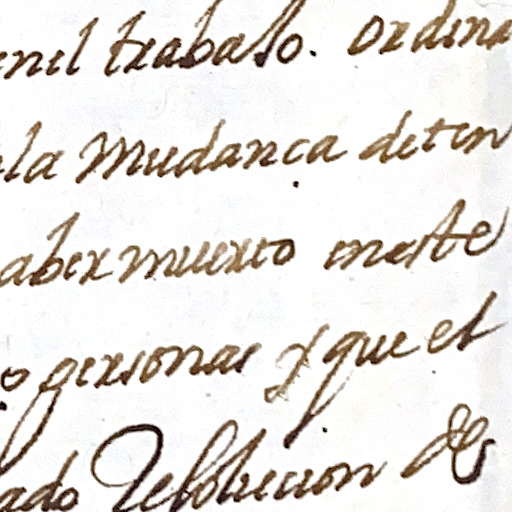 enel trabaJo. Ordina
la Mudanca deten
aber muerto eneste
o personas y que el
ado Resolucion de